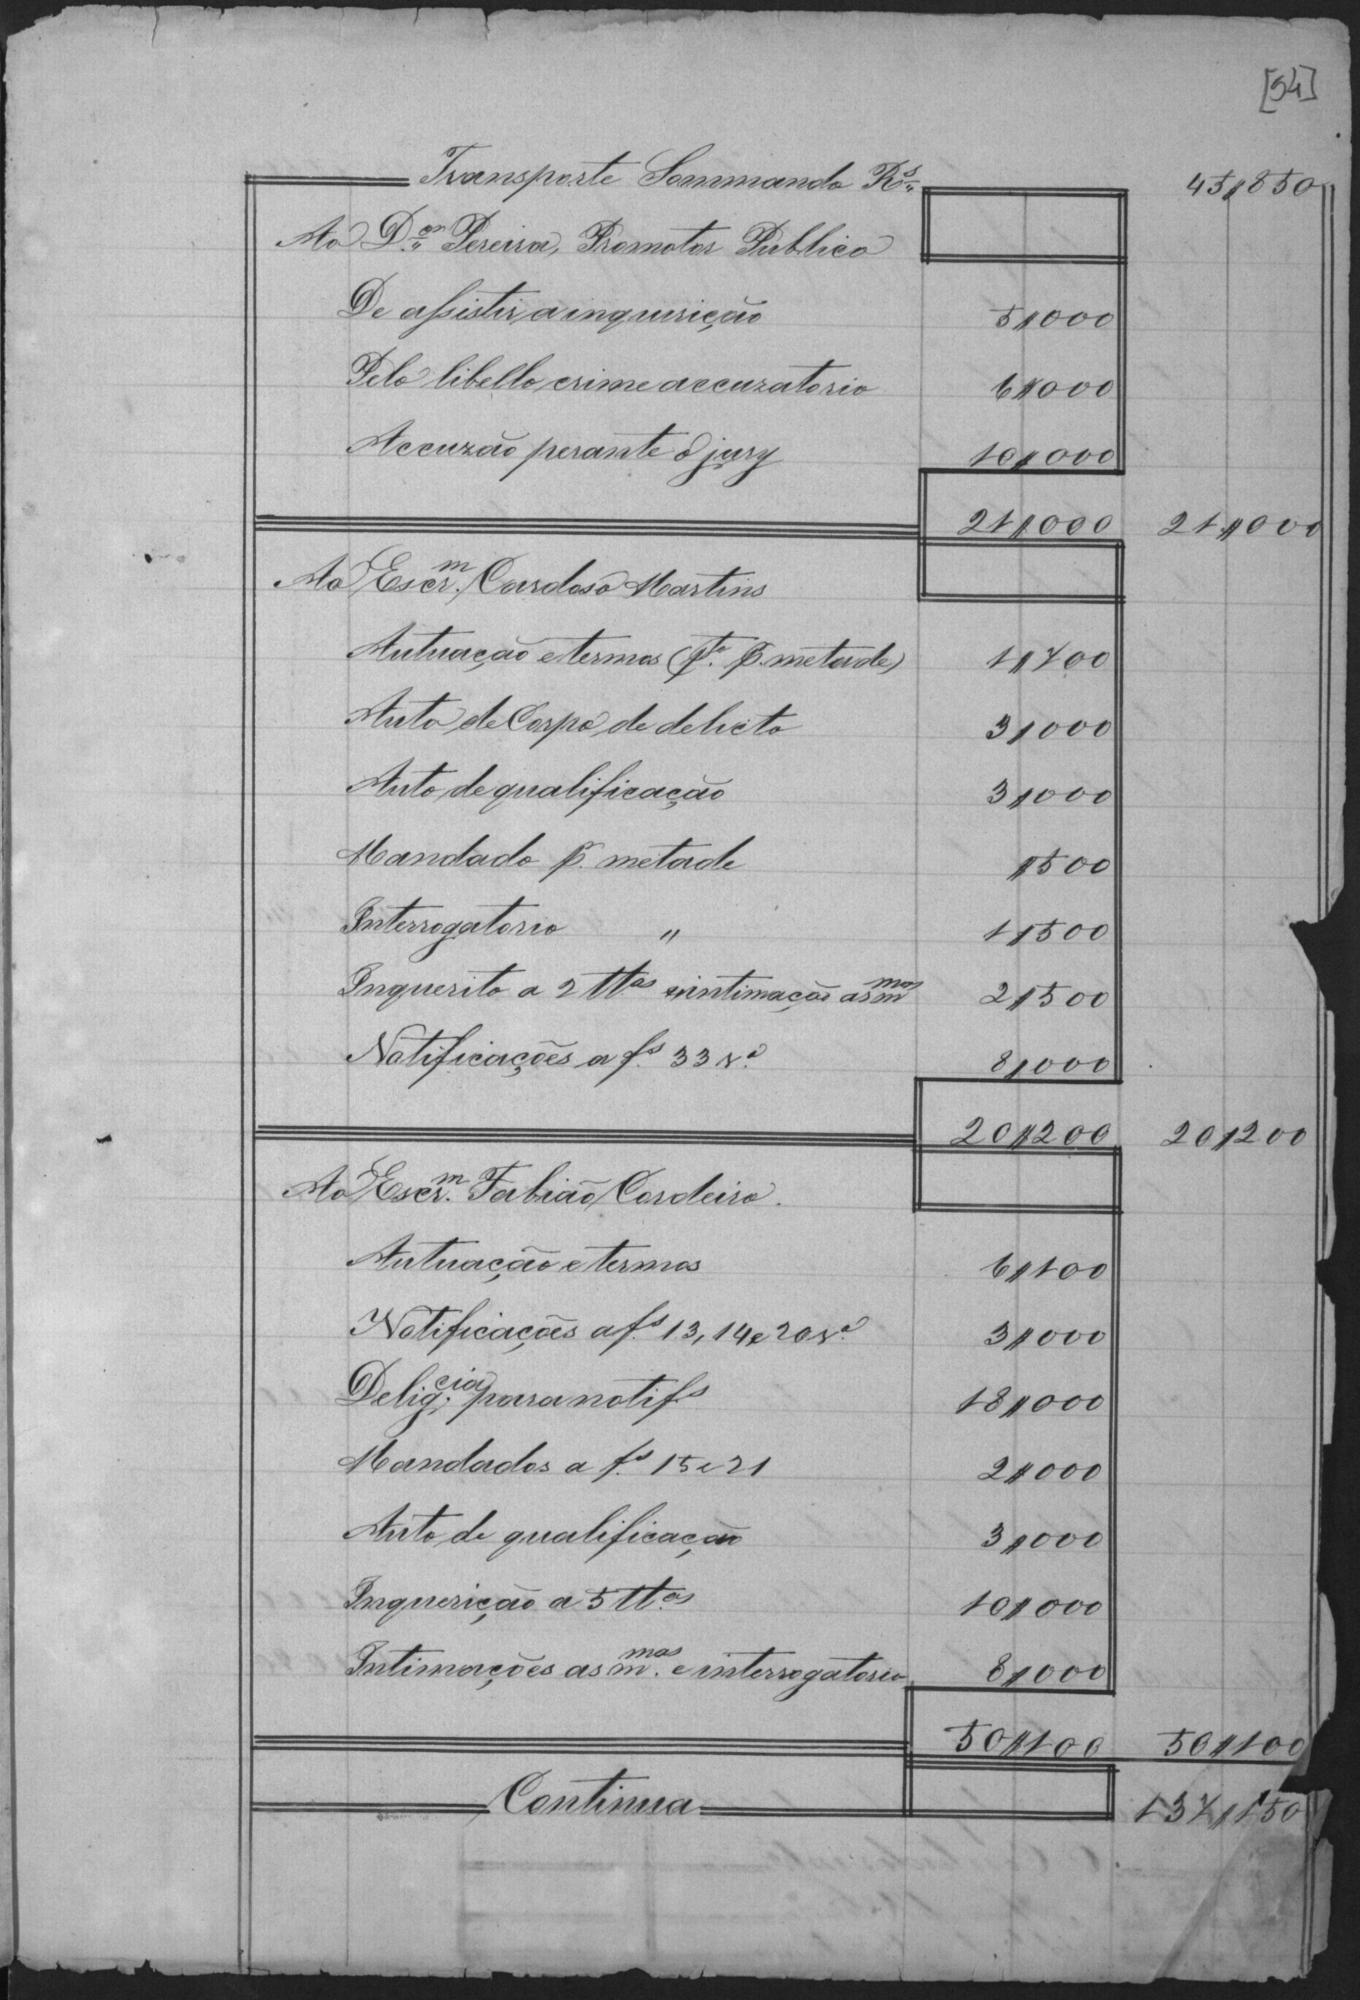 [54]
Transporte Sommando Rs. 45$850
Ao Dor. Pereira, Promotor Publico
De assistir a inquirição 5$000
Pelo libello crime accuzatorio 6$000
Accuzão perante o jury 10$000
21$000 21$000
Ao Escrm. Cardoso Martins
Autuação e termos (pte. p. metade) 1$700
Auto de Corpo de delicto 3$000
Auto de qualificação 3$000
Mandado p. metade $500
Interrogatorio " 1$500
Inquerito a 2 ttas e intimação as mmas 2$500
Notificações a fs. 33 v.o 8$000
20$200 20$200
Ao Escrm. Fabião Cordeiro.
Autuação e termos 6$100
Notificações a fs. 13, 14 e 20 v.o 3$000
Deligcia. para notifs 18$000
Mandados a fs. 15 e 21 2$000
Auto de qualificação 3$000
Inquerição a 5 ttas 10$000
Intimações as mmas. e interrogatorio 8$000
50$100 50$100
Continua 137$150